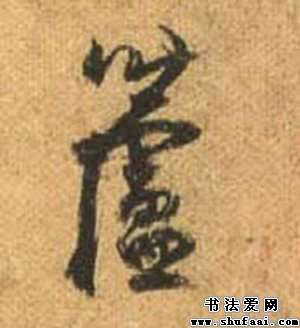 蘆
书法爱网
www.shufaai.com